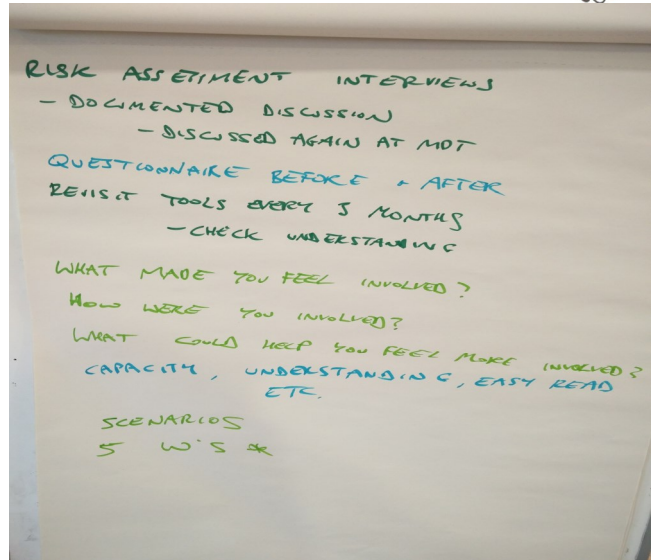 RISK ASSESSMENT INTERVIEWS
- DOCUMENTED DISCUSSION
- DISCUSSED AGAIN AT MDT
QUESTIONNAIRE BEFORE + AFTER
REVISIT TOOLS EVERY 3 MONTHS
- CHECK UNDERSTANDING
WHAT MADE YOU FEEL INVOLVED?
HOW WERE YOU INVOLVED?
WHAT COULD HELP YOU FEEL MORE INVOLVED?
CAPACITY, UNDERSTANDING, EASY READ
ETC.
SCENARIOS
5 W'S *